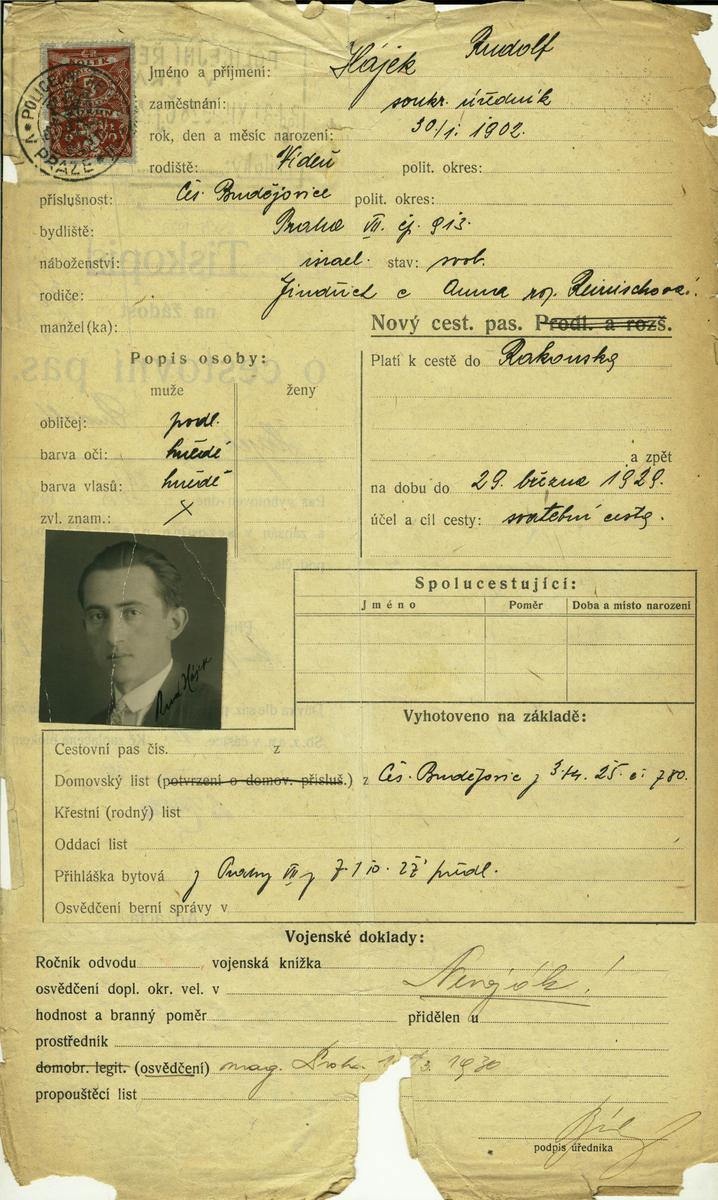 POLICE
V PRAZE
Jméno a příjmení: Hájek Rudolf
zaměstnání: soukr. úředník
rok, den a měsíc narození: 30/1. 1902.
rodiště: Vídeň polit. okres:
příslušnost: Čes. Budějovice polit. okres:
bydliště: Praha VII. čp. 913.
náboženství: israel. stav: svob.
rodiče: Jindřich a Anna roz. Reinischová.
manžel(ka):
Nový cest. pas. Prodl. a rozš.
Popis osoby:
muže ženy
obličej: podl.
barva očí: hnědé
barva vlasů: hnědé
zvl. znam.: x
Platí k cestě do Rakouska
a zpět
na dobu do 29. března 1929.
účel a cíl cesty: svatební cesta.
Rud Hájek
Spolucestující:
Jméno Poměr Doba a místo narození
Vyhotoveno na základě:
Cestovní pas čís. z
Domovský list (potvrzení o domov. přísluš.) z Čes. Budějovic z 25. 780.
Křestní (rodný) list
Oddací list
Přihláška bytová z Prahy VII z
Osvědčení berní správy v
Vojenské doklady:
Ročník odvodu vojenská knižka
osvědčení dopl. okr. vel. v Nevoják!
hodnost a branný poměr přidělen u
prostředník
domobr. legit. (osvědčení) mag. Praha 1930
propouštěcí list
podpis úředníka